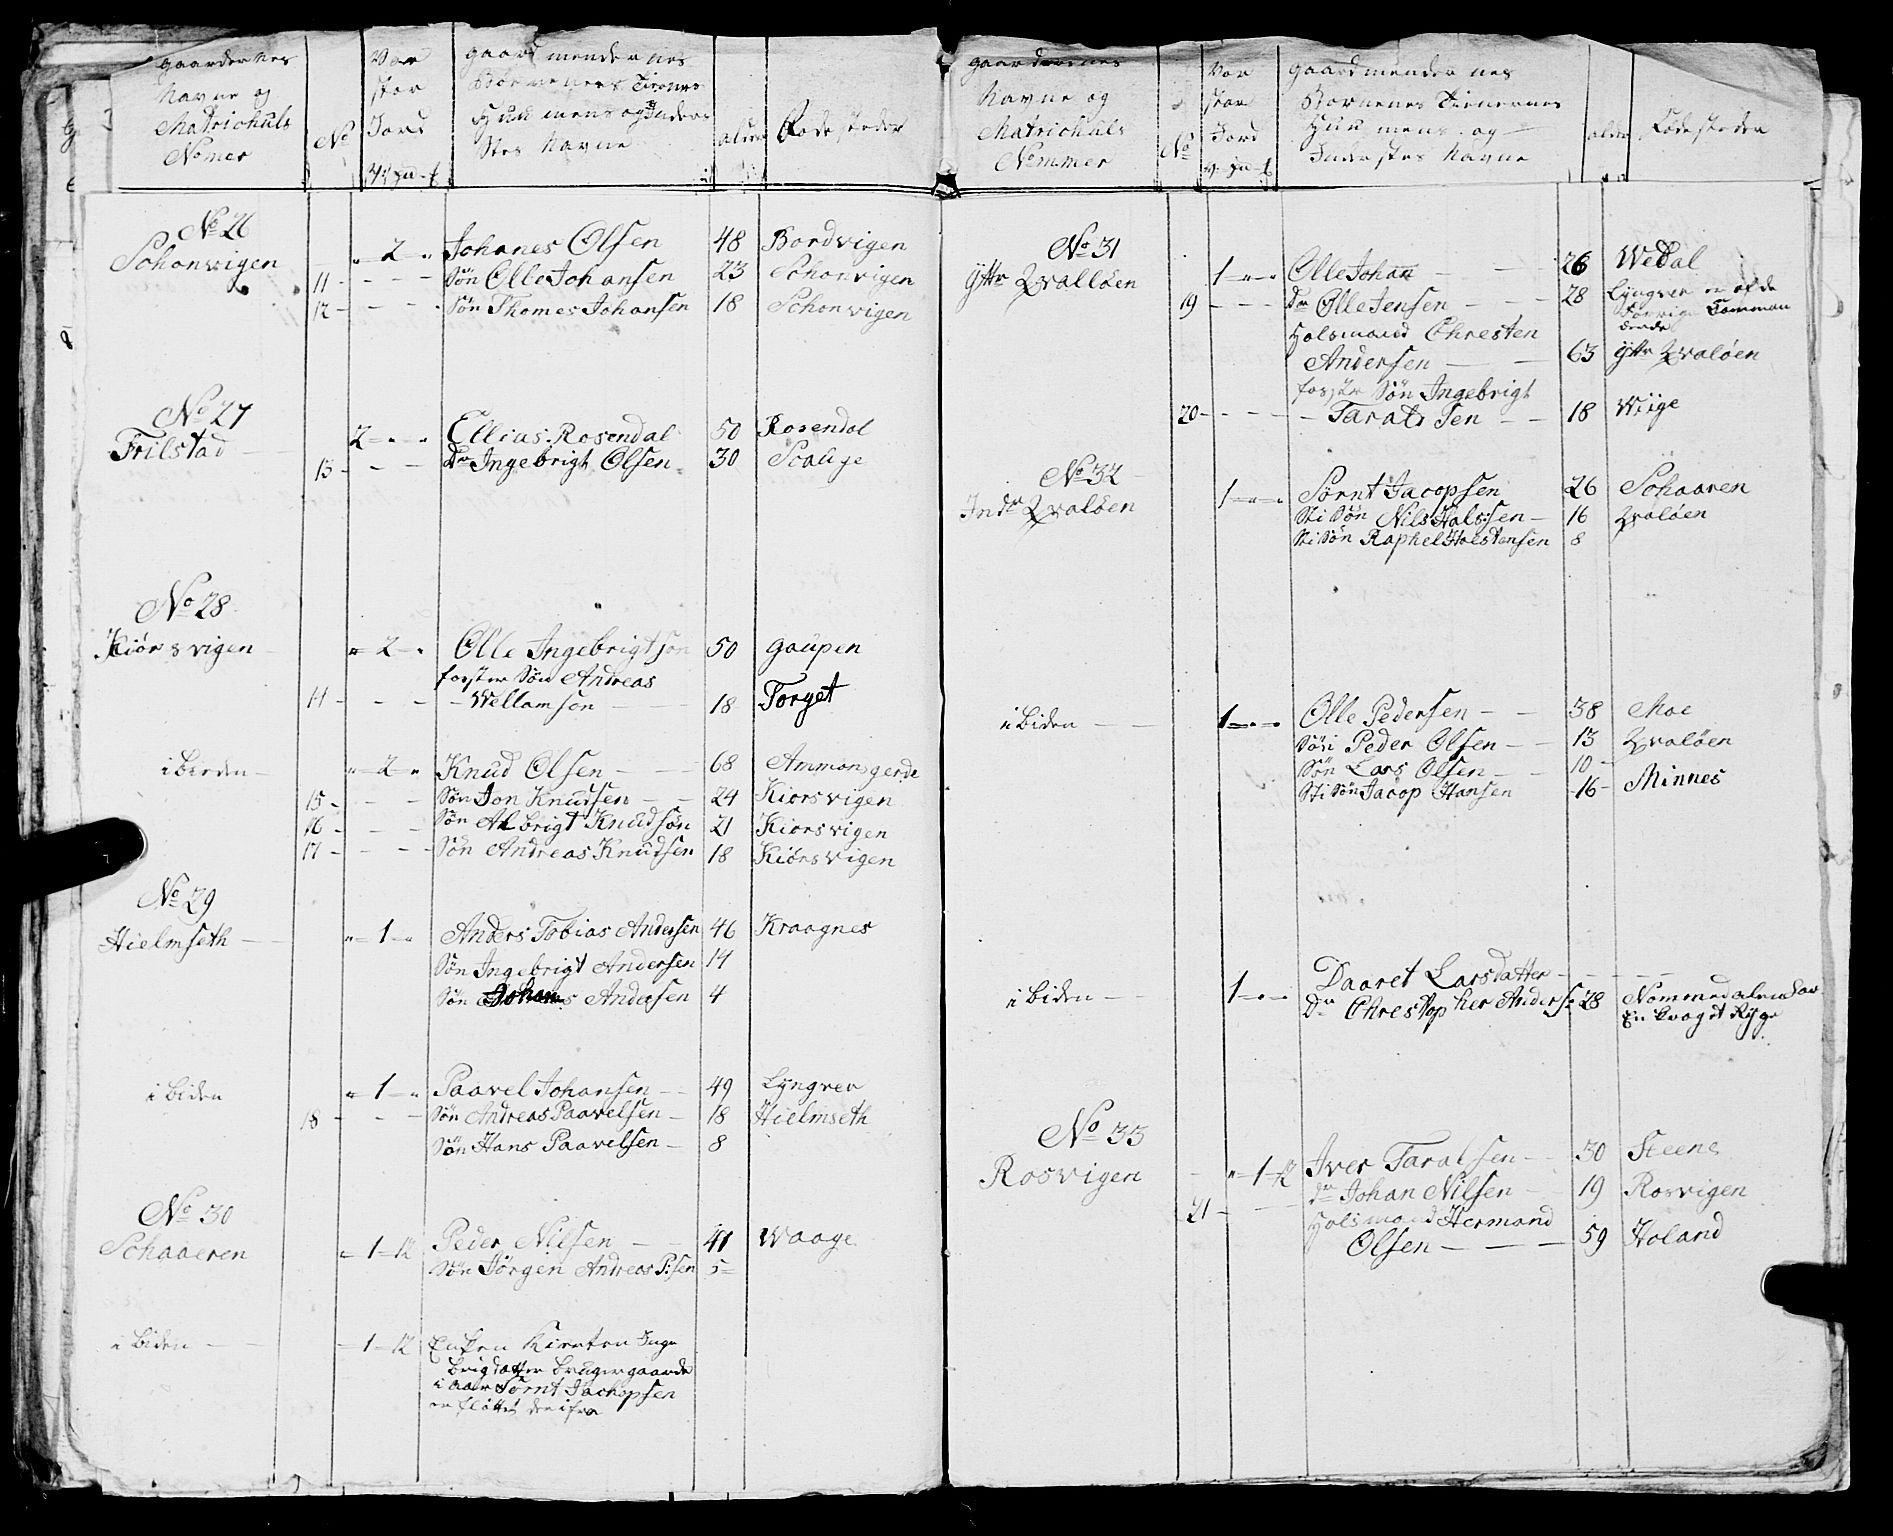 gaardernes
Navne og
Matrichuls
Nomer
No
Vor
stor
Jord
V: pd -
gaard mendernes
Börnenes Tienes
Huu mens og Inders
Stes Navne
alder
Födesteder
No 26
Schonvigen
" 2 " Johanes Olsen 48 Bordvigen
11 - - - - Sön Olle Johansen 23 Schonvigen
12 - - - - Sön Thomes Johansen 18 Schonvigen
No 27
Frilstad
2 - " - " Ellias Rosendal 50 Rosendal
13 - - - Dr Ingebrigt Olsen 30 Scauge
No 28
Kiörsvigen
" 2 - " Olle Ingebrigtsön 50 gaupen
foster Sön Andreas
14 - - - - Wellamsön 18 Torget
i biden - " 2 " Knud Olsen 68 Ammonsgerde
15 - - - Sön Jon Knudsen 24 Kiorsvigen
16 - - - Sön Albrigt Knudsön 21 Kiorsvigen
17 - - - Sön Andreas Knudsen 18 Kiörsvigen
No 29
Hielmseth
" 1 - " Anders Tobias Andersen 46 Kraagnes
Sön Ingebrigt Andersen 14
Sön Johanes Andersen 4
i biden " 1 - " Paavel Johansen 49 Lyngver
18 - - - Sön Andreas Paavelsen 18 Hielmseth
Sön Hans Paavelsen 8
No 30
Schaaeren
" 1 - 12 Peder Nilsen 41 Waage
Sön Jörgen Andreas P:sen 5
i biden - 1 - 12 Enken Kirsten Inge
brigdatter bruger gaarden
i aar Törnt Jachopsen
er flöttet derifra
gaardernes
Navne og
Matrichuls
Nommer
No
Vor
stor
Jord
v. pd
gaardmender nes
Börnenes Tienernes
Huu mens og
Inderstes Navne
alder
Födesteder
No 31
Yttr Qvallöen
1 - " - " Olle Johan 26 Wedal
19 - - - Dr Olle Jensen 28 Lyngver er af de
forrige Comman
derede
Holsmand Chresten
Andersen 63 Yttr Qvalöen
foster Sön Ingebrigt
20 - - - - - Tarals Sen 18 Wiige
No 32
Indr Qvalöen
1 - " - " Sörnt Jacopsen 26 Schaaren
Sti Sön Nils Hals:sen 16 Qvalöen
Sti Sön Raphel Holstensen 8
i biden - - 1 - " - " Olle Pedersen 38 Moe
Sön Peder Olsen 13 Qvalöen
Sön Lars Olsen 10
Sti Sön Jacop Hansen 16 Minnes
i biden - 1 - " - Daaret Larsdatter - - - -
Dr Chrestopher Anders: 28 Nommedalen har
En svaget Ryge
No 33
Rosvigen
" 1 - 12 Iver Taralsen 30 Steene
21 - - - dr Johan Nilsen 19 Rosvigen
Holsmand Hermand
Olsen - - - 59 Holand